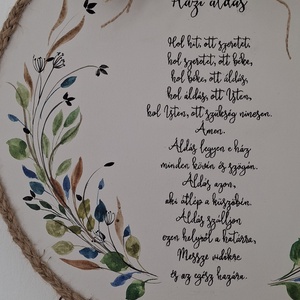 Házi áldás
Hol hit, ott szeretet;
hol szeretet, ott béke;
hol béke, ott áldás;
hol áldás, ott Isten;
hol Isten, ott szükség nincsen.
Ámen.
Áldás legyen e ház
minden kövén és szögén.
Áldás azon,
aki átlép a küszöbén.
Áldás szálljon
ezen helyről a határra,
Messze vidékre
és az egész hazára.